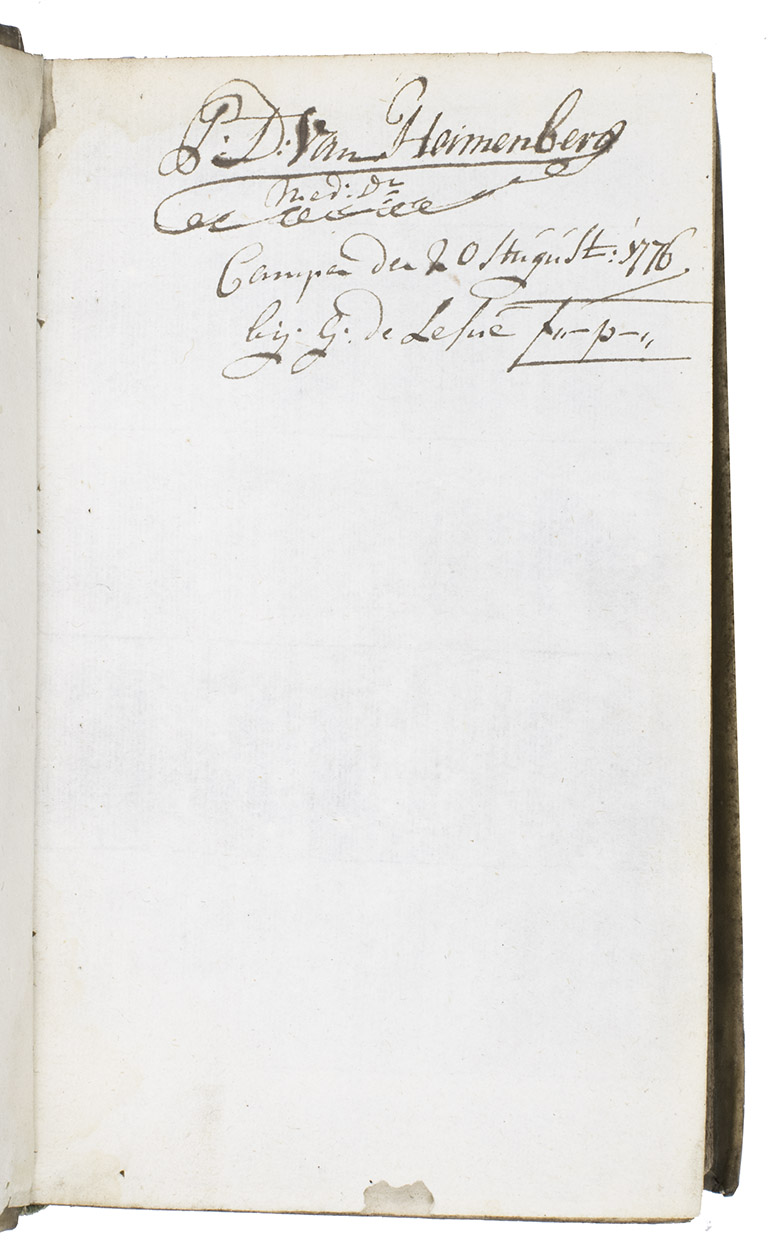 P: D: Van Heimenberg
Med: Dr
Campen den 20 August: 1776
bij G. de Lesué f,,-p-,,